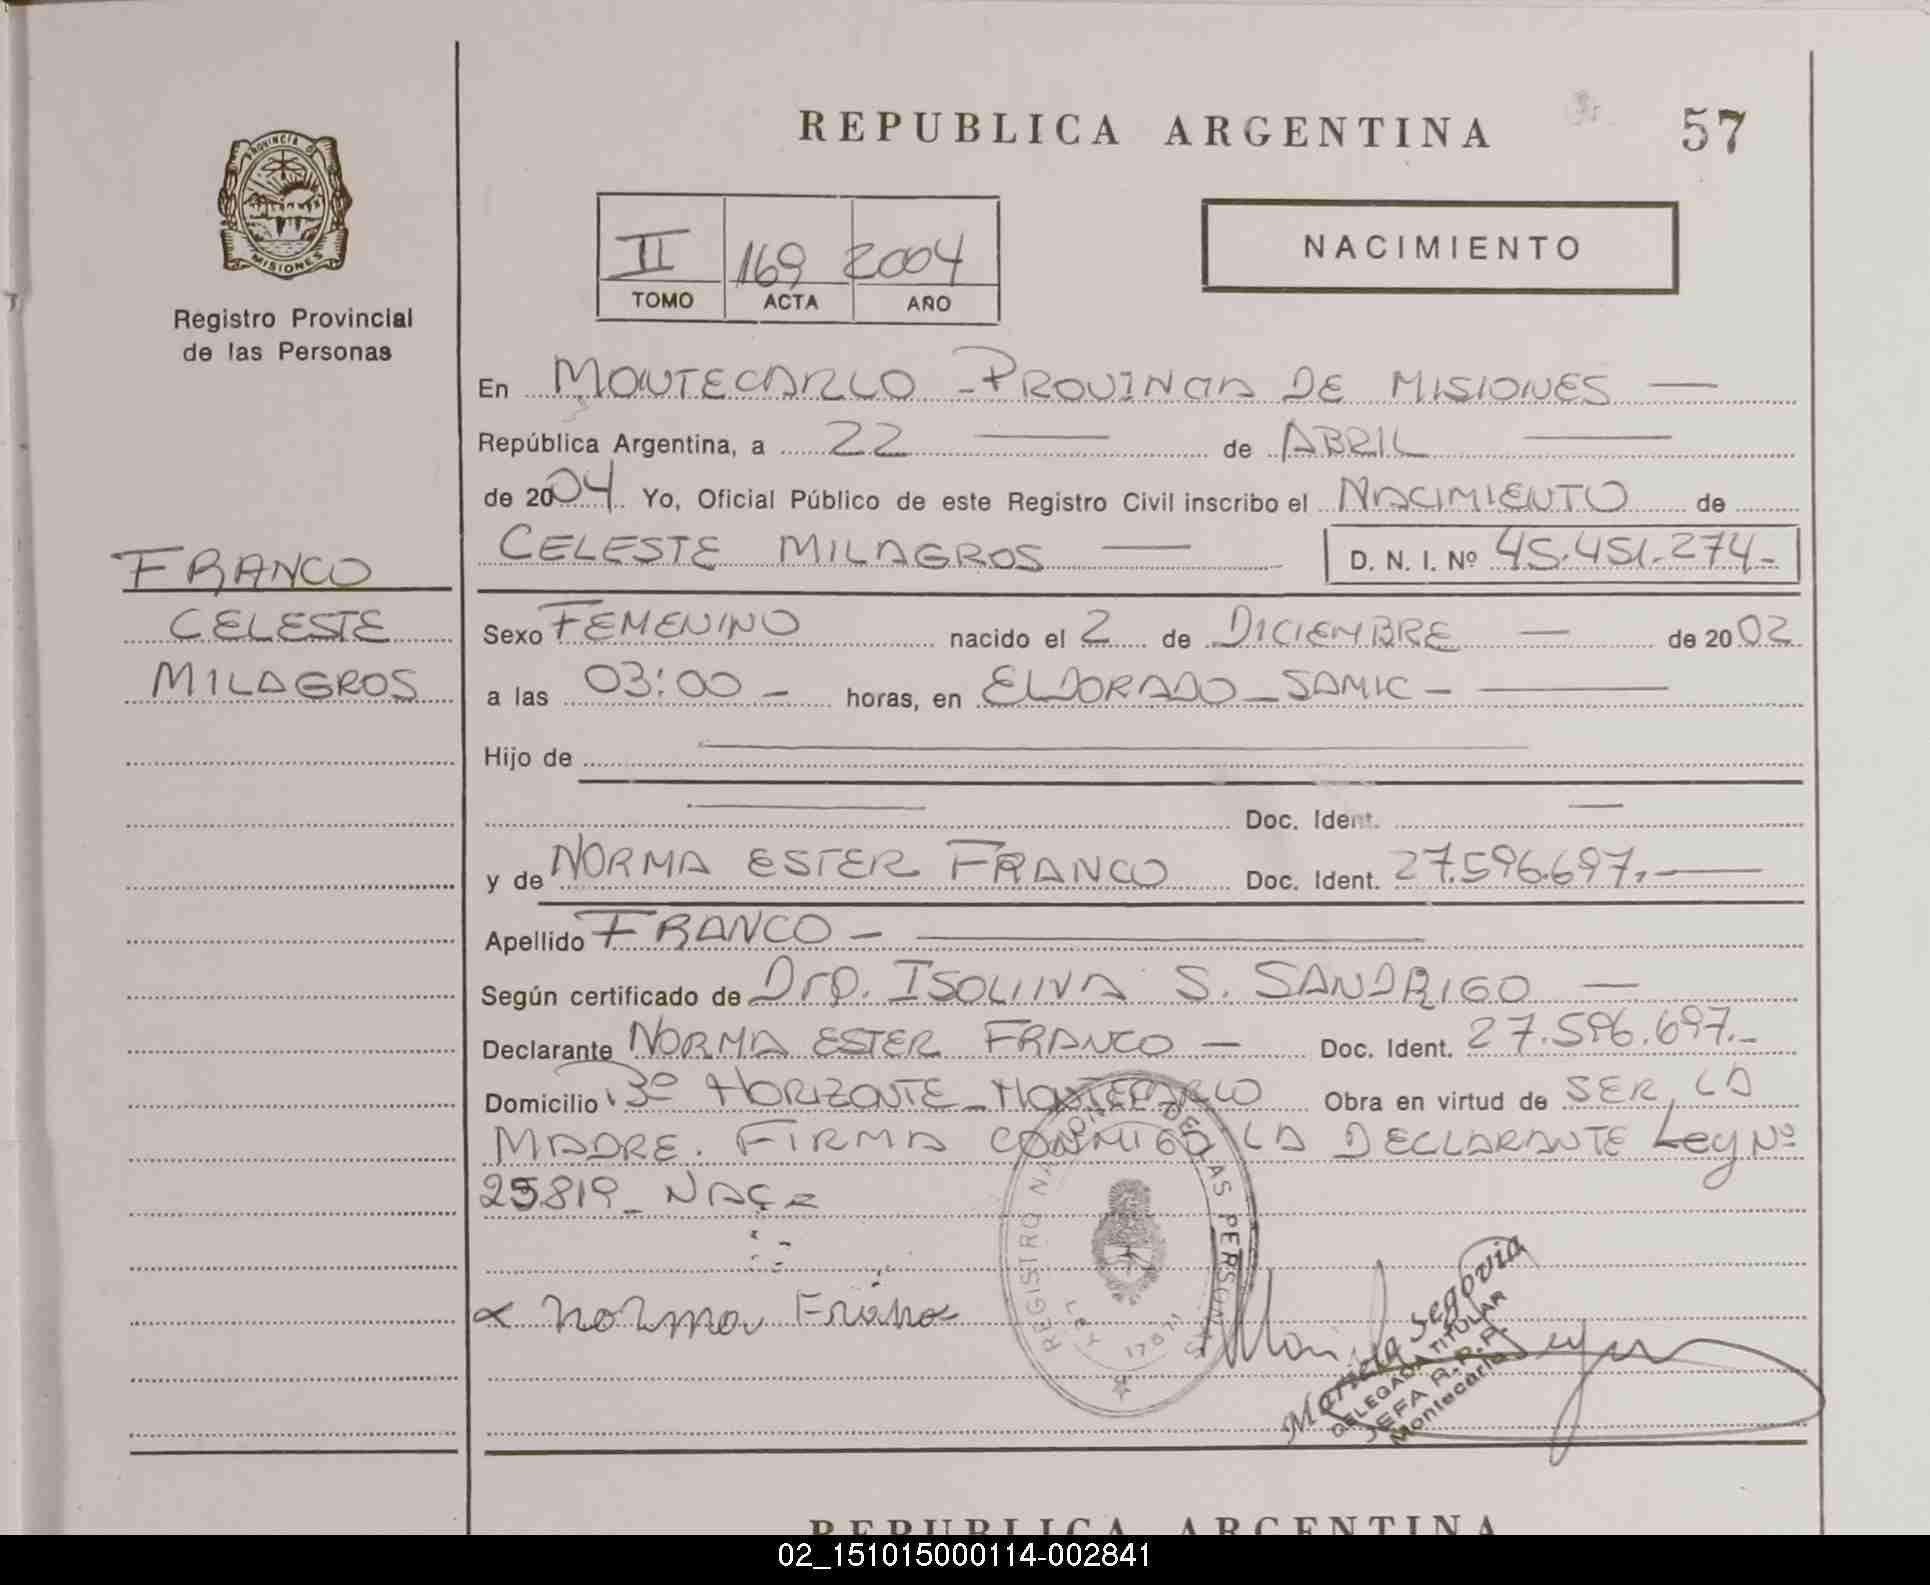 REPUBLICA ARGENTINA
57
PROVINCIA DE
MISIONES
Registro Provincial
de las Personas
II 169 2004
TOMO ACTA AÑO
NACIMIENTO
En MONTECARLO - PROVINCIA DE MISIONES —
República Argentina, a 22 — de ABRIL —
de 2004 Yo, Oficial Público de este Registro Civil inscribo el NACIMIENTO de
CELESTE MILAGROS — D. N. I. Nº 45.451.274-
FRANCO
CELESTE
MILAGROS
Sexo FEMENINO nacido el 2 de DICIEMBRE — de 2002
a las 03:00 - horas, en ELDORADO - SAMIC - —
Hijo de —
— Doc. Ident. —
y de NORMA ESTER FRANCO Doc. Ident. 27.596.697.-—
Apellido FRANCO - —
Según certificado de Dra. ISOLINA S. SANDRIGO —
Declarante NORMA ESTER FRANCO — Doc. Ident. 27.596.697.-
Domicilio 3º HORIZONTE - MONTECARLO Obra en virtud de SER LA
MADRE. FIRMA CONMIGO LA DECLARANTE Ley Nº
25819 - NAC
REGISTRO NACIONAL DE LAS PERSONAS
LEY 17671
Norma Franco
Mariela Segovia
DELEGADA TITULAR
JEFA R.R.P.
Montecarlo
REPUBLICA ARGENTINA
02_151015000114-002841